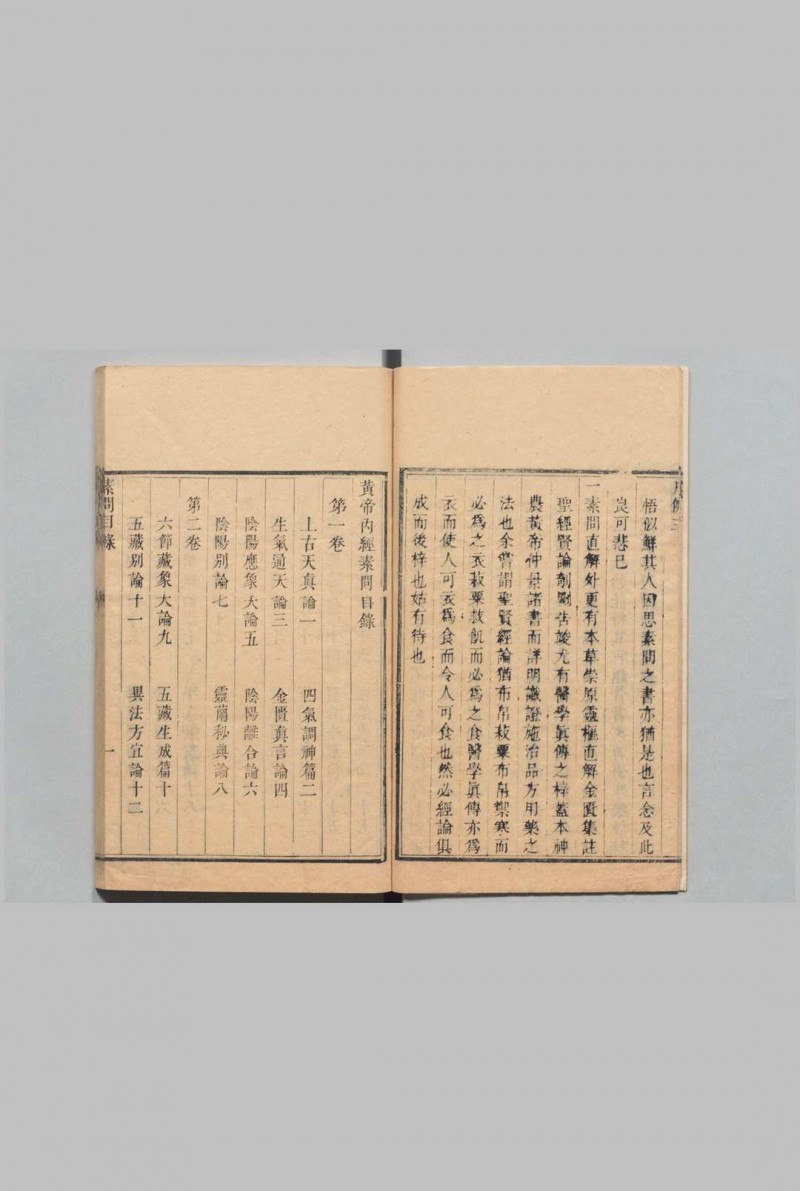 凡例三
悟似鮮其人因思素問之書亦猶是也言念及此
良可悲已
一素問直解外更有本草崇原靈樞直解金匱集註
聖經賢論剞劂告竣尤有醫學眞傳之梓蓋本神
農黃帝仲景諸書而詳明識證施治品方用藥之
法也余嘗謂聖賢經論猶布帛菽粟布帛禦寒而
必爲之衣菽粟救飢而必爲之食醫學眞傳亦爲
衣而使人可衣爲食而令人可食也然必經論俱
成而後梓也姑有待也
黃帝內經素問目錄
第一卷
上古天真論一 四氣調神篇二
生氣通天論三 金匱真言論四
陰陽應象大論五 陰陽離合論六
陰陽別論七 靈蘭秘典論八
第二卷
六節藏象大論九 五藏生成篇十
五藏別論十一 異法方宜論十二
素問目錄 一